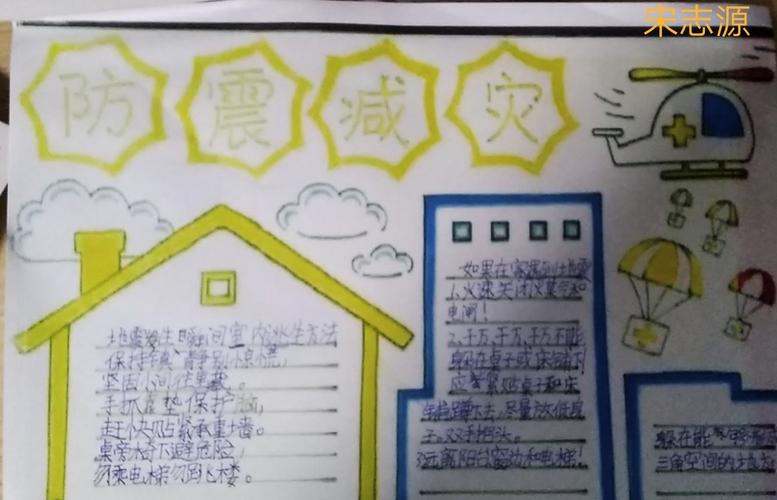 宋志源
防震减灾
地震发生瞬间室内逃生方法
保持镇静别惊慌,
坚固小间往里藏。
手抓靠垫保护脑,
赶快贴紧承重墙。
桌旁椅下避危险,
勿乘电梯勿跳楼。
如果在家遇到地震
1、火速关闭火煤气和
电闸!
2、千万、千万、千万不能
躲在桌子或床铺下
应紧贴桌子和床
蹲下去,尽量放低身
子。双手抱头。
远离阳台窗边和电梯!
躲在能
三角空间的地方